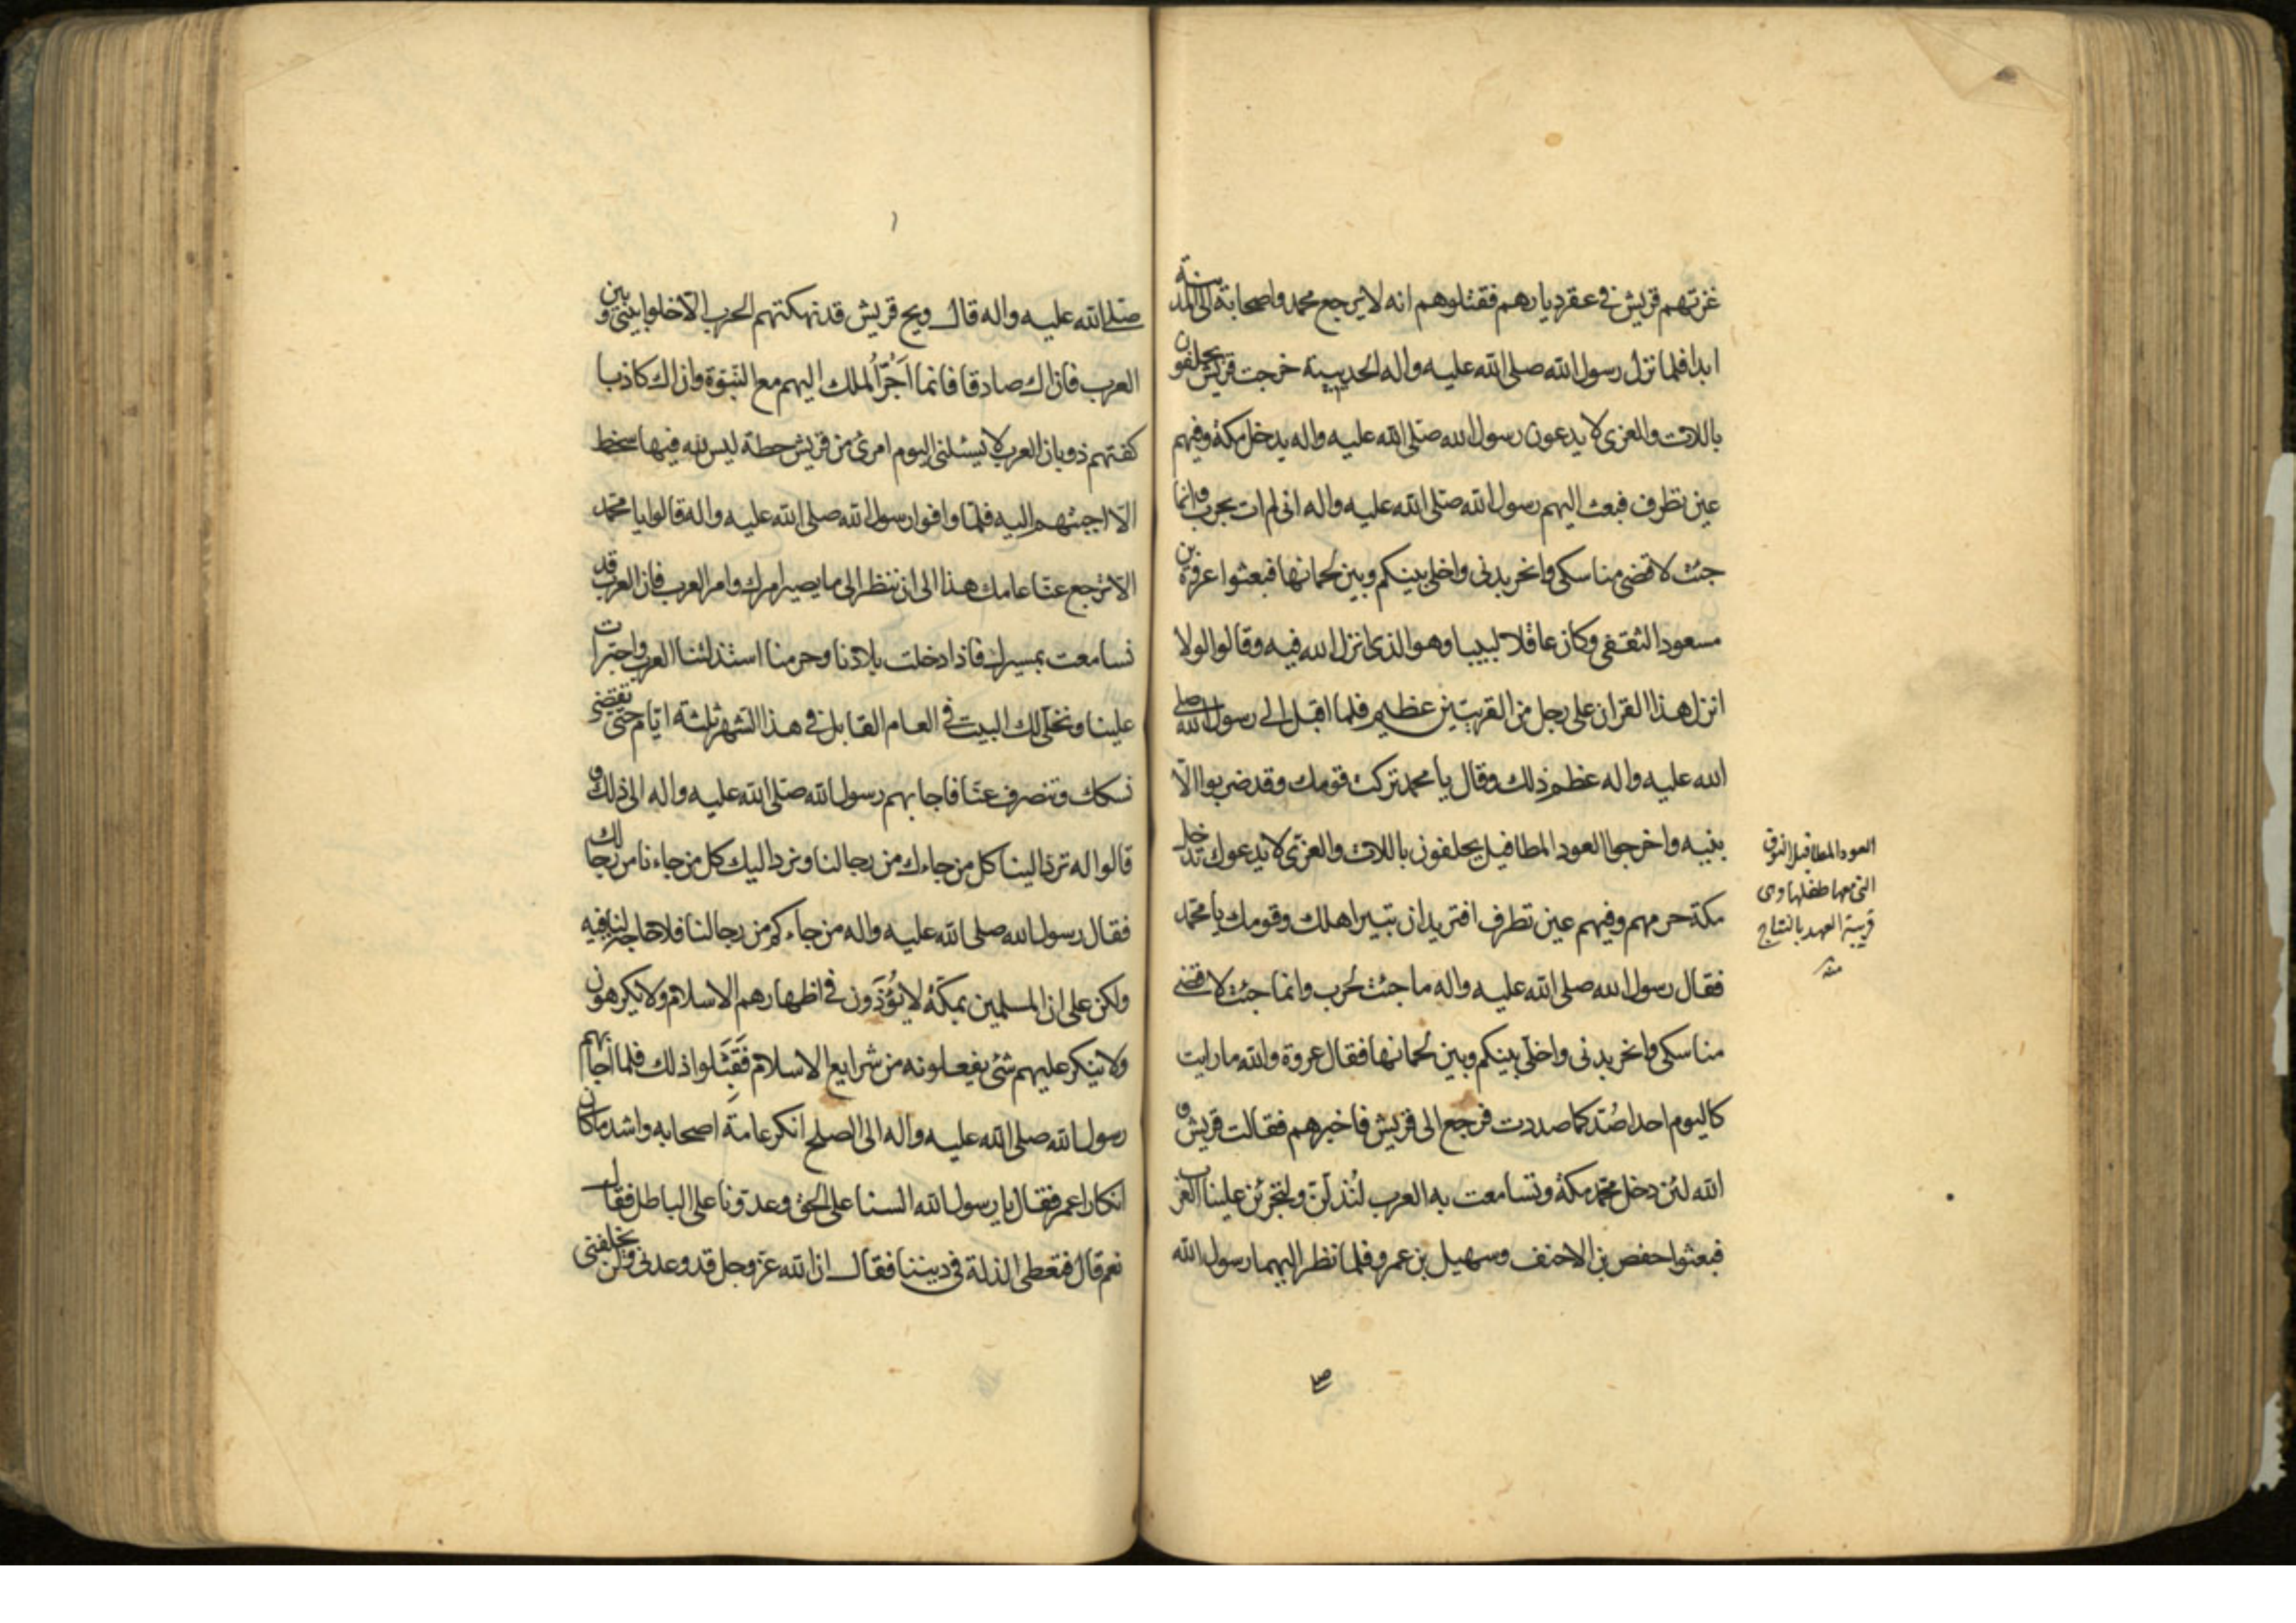 غزتهم قريش في عقر ديارهم فقتلوهم انه لا يرجع محمد واصحابه الى المدينة
ابدا فلما نزل رسول الله صلى الله عليه واله الحديبية خرجت قريش يحلفون
باللات والعزى لا يدعون رسول الله صلى الله عليه واله يدخل مكة وفيهم
عين تطرف فبعث اليهم رسول الله صلى الله عليه واله انى لم ات بحرب وانما
جئت لاقضى مناسكى وانحر بدنى واخلى بينكم وبين لحمانها فبعثوا عروة بن
مسعود الثقفى وكان عاقلا لبيبا وهو الذى انزل الله فيه وقالوا لولا
انزل هذا القران على رجل من القريتين عظيم فلما اقبل الى رسول الله صلى
الله عليه واله عظم ذلك وقال يا محمد تركت قومك وقد ضربوا الا
بنيه واخرجوا العود المطافيل يحلفون باللات والعزى لا يدعوك تدخل
مكة حرمهم وفيهم عين تطرف افتريد ان تبير اهلك وقومك يا محمد
فقال رسول الله صلى الله عليه واله ما جئت لحرب وانما جئت لاقضى
مناسكى وانحر بدنى واخلى بينكم وبين لحمانها فقال عروة والله ما رايت
كاليوم احدا صُدّ كما صددت فرجع الى قريش فاخبرهم فقالت قريش و
الله لئن دخل محمد مكة وتسامعت به العرب لنُذلّنّ ولتجرئن علينا العرب
فبعثوا حفص بن الاحنف وسهيل بن عمرو فلما نظر اليهما رسول الله
صلى
العود المطافيل النوق
التى معها طفلها وهى
قريبة العهد بالنتاج
منه
صلى الله عليه واله قال ويح قريش قد نهكتهم الحرب الا خلوا بينى وبين
العرب فان اك صادقا فانما اَجُرّ الملك اليهم مع النبوة وان اك كاذبا
كفتهم ذوبان العرب لا يسئلنى اليوم امرئ من قريش حطة ليس لله فيها سخط
الا اجبتهم اليه فلما وافوا رسول الله صلى الله عليه واله قالوا يا محمد
الا ترجع عنا عامك هذا الى ان ننظر الى ما يصير امرك وامر العرب فان العرب قد
تسامعت بمسيرك فاذا دخلت بلادنا وحرمنا استذلتنا العرب واجترات
علينا ونخلى لك البيت فى العام القابل فى هذا الشهر ثلثة ايام حتى تقضى
نسكك وتنصرف عنا فاجابهم رسول الله صلى الله عليه واله الى ذلك و
قالوا له ترد الينا كل من جاءك من رجالنا ونرد اليك كل من جاءنا من رجالك
فقال رسول الله صلى الله عليه واله من جاءكم من رجالنا فلا حاجة لنا فيه
ولكن على ان المسلمين بمكة لا يُؤذَون فى اظهارهم الاسلام ولا يكرهون
ولا ينكر عليهم شئ يفعلونه من شرايع الاسلام فَقَبِلوا ذلك فلما اجابهم
رسول الله صلى الله عليه واله الى الصلح انكر عامة اصحابه واشد ما كان
انكارا عمر فقال يا رسول الله السنا على الحق وعدونا على الباطل فقال
نعم قال فتعطى الذلة فى ديننا فقال ان الله عز وجل قد وعدنى ولن يخلفنى